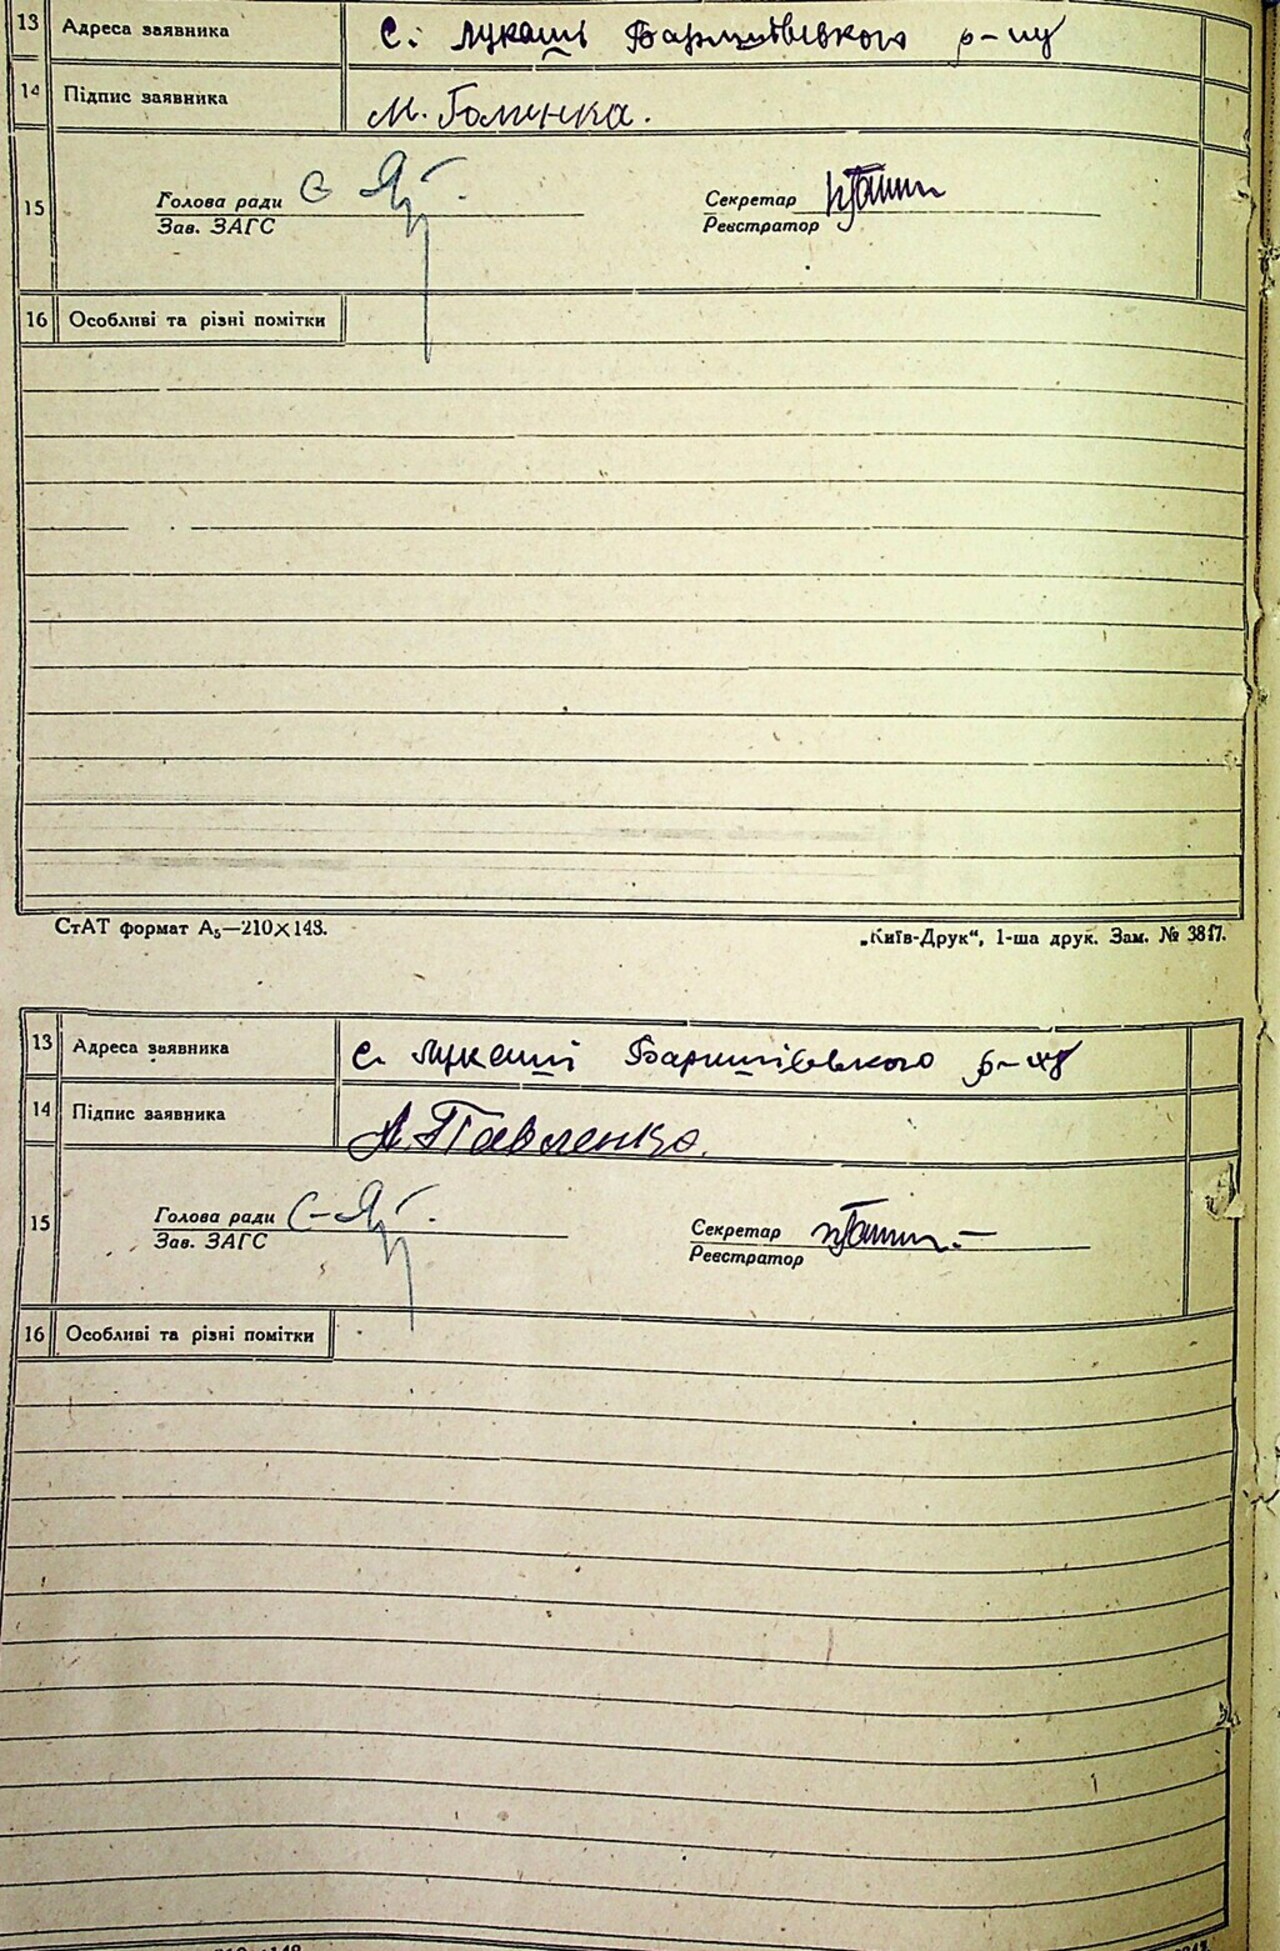 13 Адреса заявника с. Лукаші Баришівського р-ну
14 Підпис заявника М. Гоменка.
15 Голова ради Секретар
Зав. ЗАГС Реєстратор
16 Особливі та різні помітки
СтАТ формат А₅—210×143. „Київ-Друк“, 1-ша друк. Зам. № 3817.
13 Адреса заявника с. Лукаші Баришівського р-ну
14 Підпис заявника А. Павленко.
15 Голова ради Секретар
Зав. ЗАГС Реєстратор
16 Особливі та різні помітки